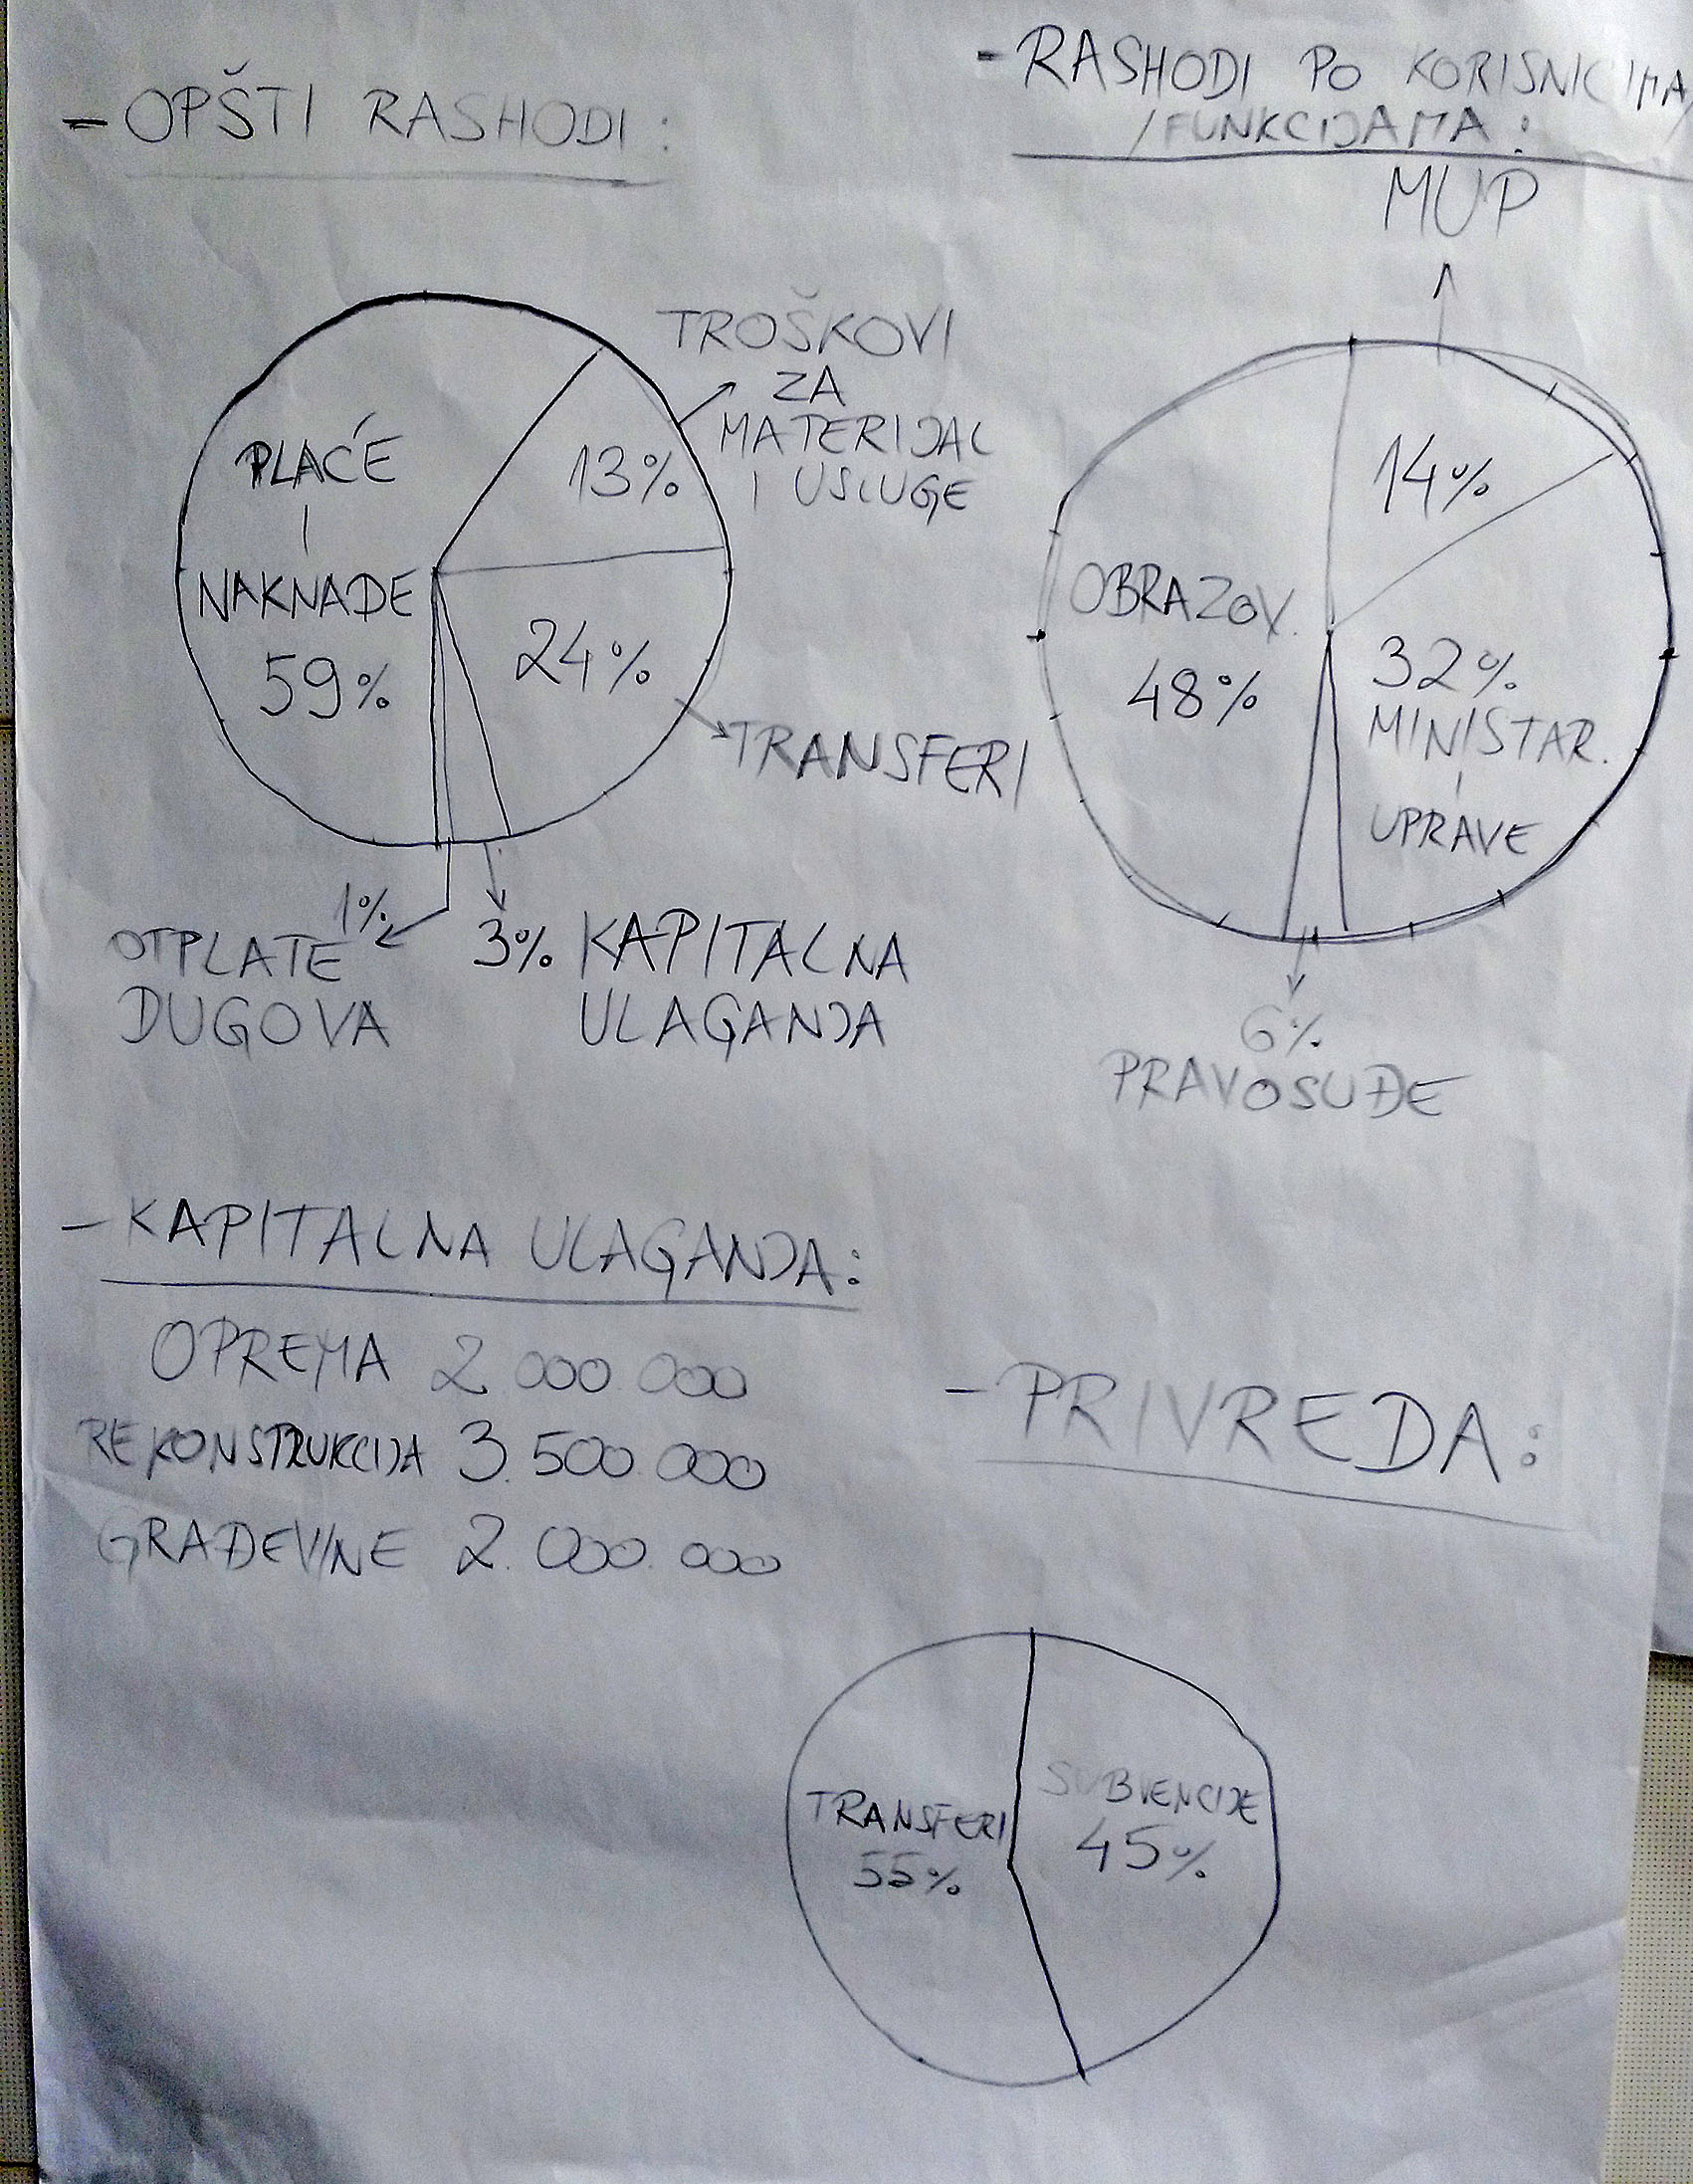 - OPŠTI RASHODI:
PLAĆE
I
NAKNADE
59%
13%
TROŠKOVI
ZA
MATERIJAL
I USLUGE
24%
TRANSFERI
1%
OTPLATE
DUGOVA
3% KAPITALNA
ULAGANJA
- RASHODI PO KORISNICIMA/
/FUNKCIJAMA:
MUP
14%
OBRAZOV.
48%
32%
MINISTAR.
I
UPRAVE
6%
PRAVOSUĐE
- KAPITALNA ULAGANJA:
OPREMA 2 000 000
REKONSTRUKCIJA 3.500 000
GRAĐEVINE 2.000.000
- PRIVREDA:
TRANSFERI
55%
SUBVENCIJE
45%